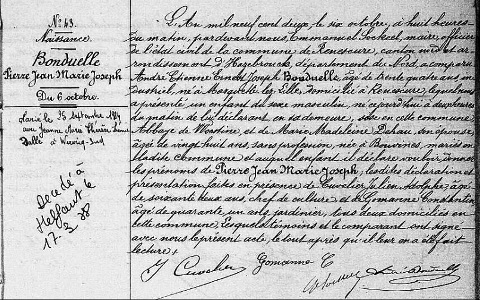 N° 43.
Naissance
Bonduelle
Pierre Jean Marie Joseph
Du 6 octobre.
Marié le 26 septembre
avec Jeanne
à
Décédé à
Helfaut le
17-2-38
L'An mil neuf cent deux, le six octobre, à huit heures
du matin, par devant nous, Emmanuel, maire, officier
de l'état civil de la commune de Renescure, canton et ar-
rondissement d'Hazebrouck, département du Nord, a comparu
André Etienne Emile Joseph Bonduelle, âgé de trente quatre ans, in-
dustriel, né à Marquette lez Lille, domicilié à Renescure, lequel nous
a présenté un enfant du sexe masculin, né ce jourd'hui à deux heures
du matin de lui déclarant, en sa demeure, sise en cette commune
Abbaye de Woestine, et de Marie Madeleine Dehau son épouse,
âgée de vingt huit ans, sans profession, née à Bouvines, mariés en
ladite commune et auquel enfant il déclare vouloir donner
les prénoms de Pierre Jean Marie Joseph, lesdites déclaration et
présentation faites en présence de Cuvelier Julien Adolphe, âgé
de soixante deux ans, chef de culture et de Gomanne Constantin,
âgé de quarante un ans, jardinier, tous deux domiciliés en
cette commune, lesquels témoins et le comparant ont signé
avec nous le présent acte, le tout après qu'il leur en a été fait
lecture.
J Cuvelier Gomanne C